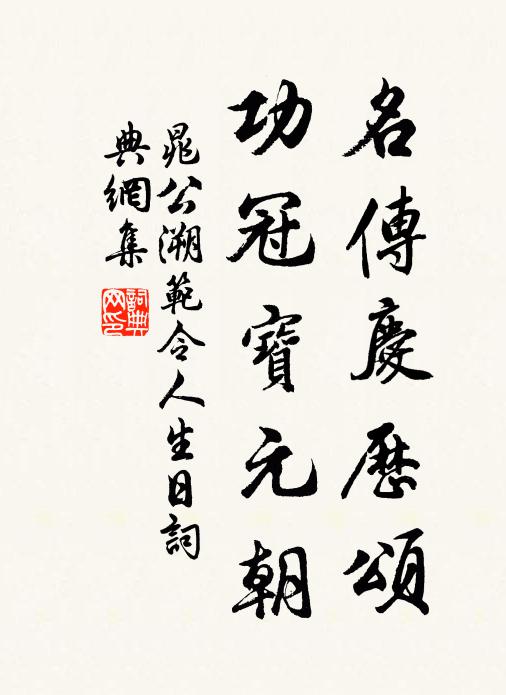 名傳慶歷頌
功冠寶元朝
晁公溯範令人生日詞
典網集
詞典網印